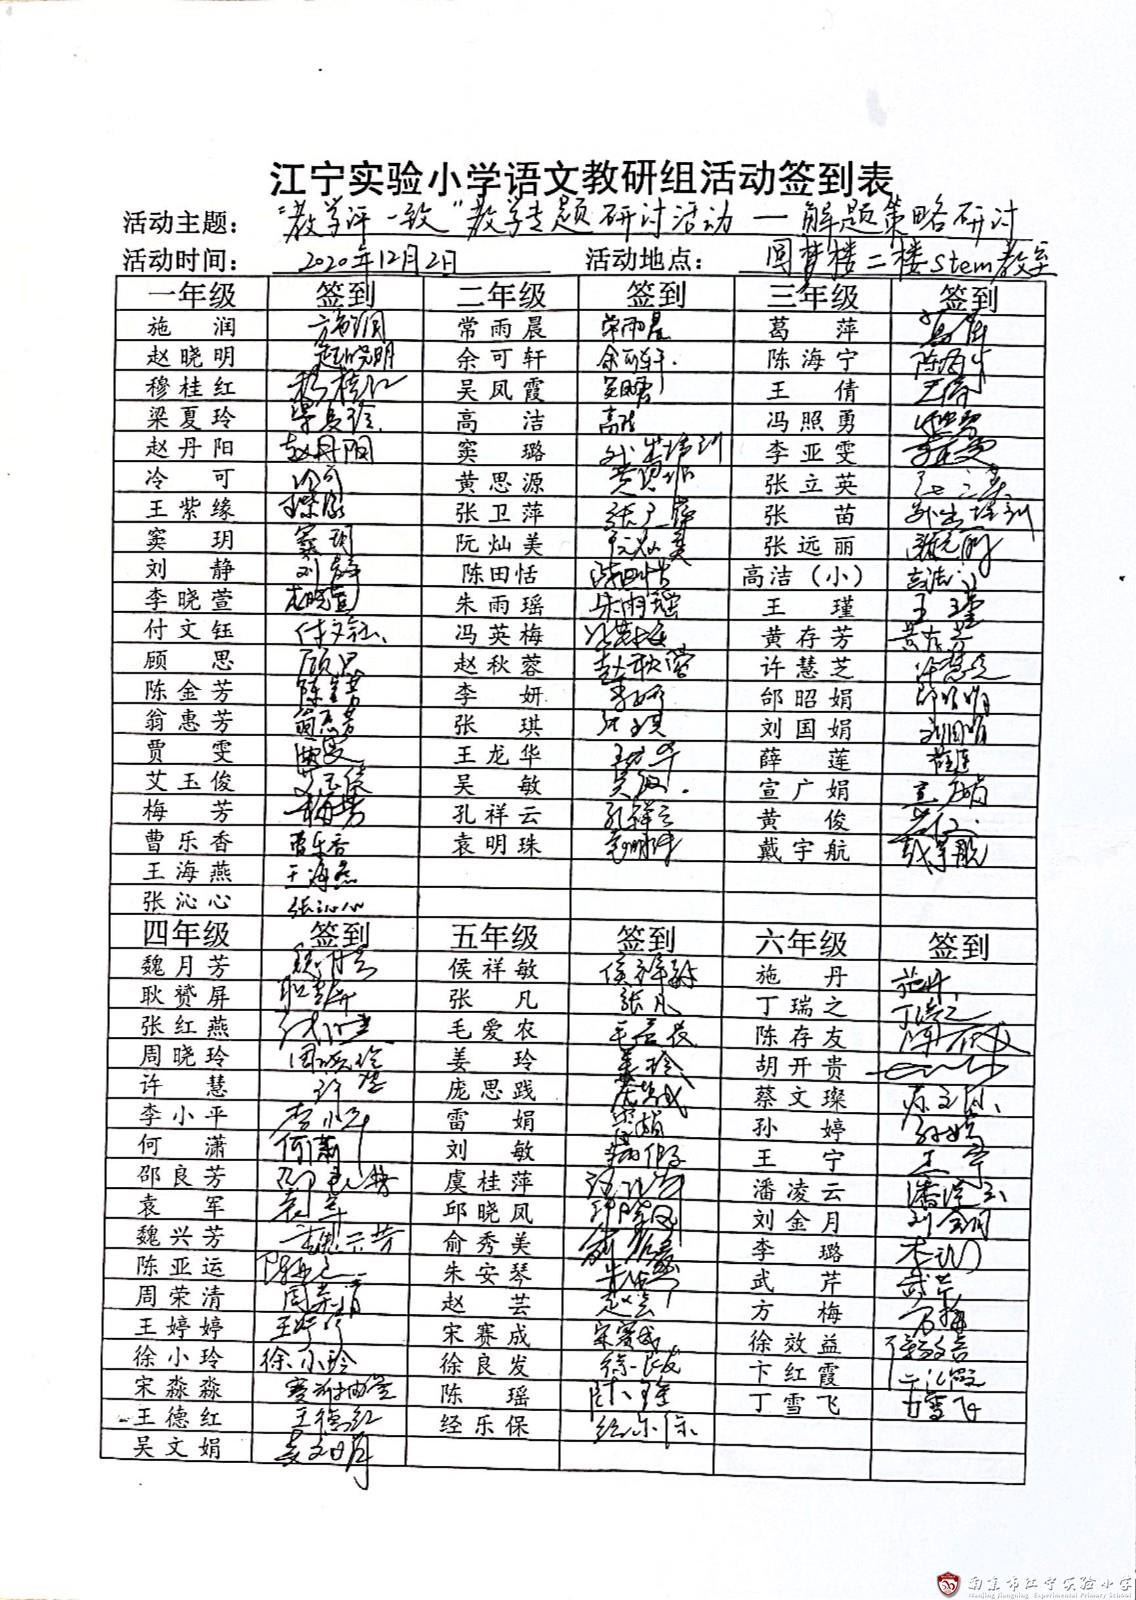 江宁实验小学语文教研组活动签到表
活动主题： "教学评一致"教学专题研讨活动—解题策略研讨
活动时间： 2020年12月2日 活动地点： 圆梦楼二楼stem教室
一年级 签到 二年级 签到 三年级 签到
施润 常雨晨 常雨晨 葛萍
赵晓明 赵晓明 余可轩 余可轩 陈海宁
穆桂红 穆桂红 吴凤霞 王倩
梁夏玲 梁夏玲 高洁 高洁 冯照勇
赵丹阳 赵丹阳 窦璐 外出培训 李亚雯 李亚雯
冷可 冷可 黄思源 张立英
王紫缘 张卫萍 张卫萍 张苗 外出培训
窦玥 窦玥 阮灿美 阮灿美 张远丽
刘静 刘静 陈田恬 陈田恬 高洁（小） 高洁
李晓萱 李晓萱 朱雨瑶 朱雨瑶 王瑾 王瑾
付文钰 付文钰 冯英梅 冯英梅 黄存芳 黄存芳
顾思 顾思 赵秋蓉 赵秋蓉 许慧芝
陈金芳 陈金芳 李妍 李妍 邰昭娟
翁惠芳 翁惠芳 张琪 张琪 刘国娟 刘国娟
贾雯 王龙华 王龙华 薛莲 薛莲
艾玉俊 艾玉俊 吴敏 吴敏 宣广娟
梅芳 梅芳 孔祥云 孔祥云 黄俊
曹乐香 曹乐香 袁明珠 袁明珠 戴宇航 戴宇航
王海燕 王海燕
张沁心 张沁心
四年级 签到 五年级 签到 六年级 签到
魏月芳 侯祥敏 侯祥敏 施丹 施丹
耿赟屏 张凡 张凡 丁瑞之
张红燕 毛爱农 毛爱农 陈存友
周晓玲 周晓玲 姜玲 姜玲 胡开贵
许慧 许慧 庞思践 蔡文璨
李小平 李小平 雷娟 孙婷 孙婷
何潇 何潇 刘敏 王宁 王宁
邵良芳 虞桂萍 潘凌云 潘凌云
袁军 袁军 邱晓凤 邱晓凤 刘金月
魏兴芳 俞秀美 李璐
陈亚运 朱安琴 武芹 武芹
周荣清 周荣清 赵芸 赵芸 方梅 方梅
王婷婷 宋赛成 宋赛成 徐效益 徐效益
徐小玲 徐小玲 徐良发 徐良发 卞红霞
宋淼淼 陈瑶 丁雪飞 丁雪飞
王德红 王德红 经乐保 经乐保
吴文娟 吴文娟
南京市江宁实验小学
Nanjing Jiangning Experimental Primary School